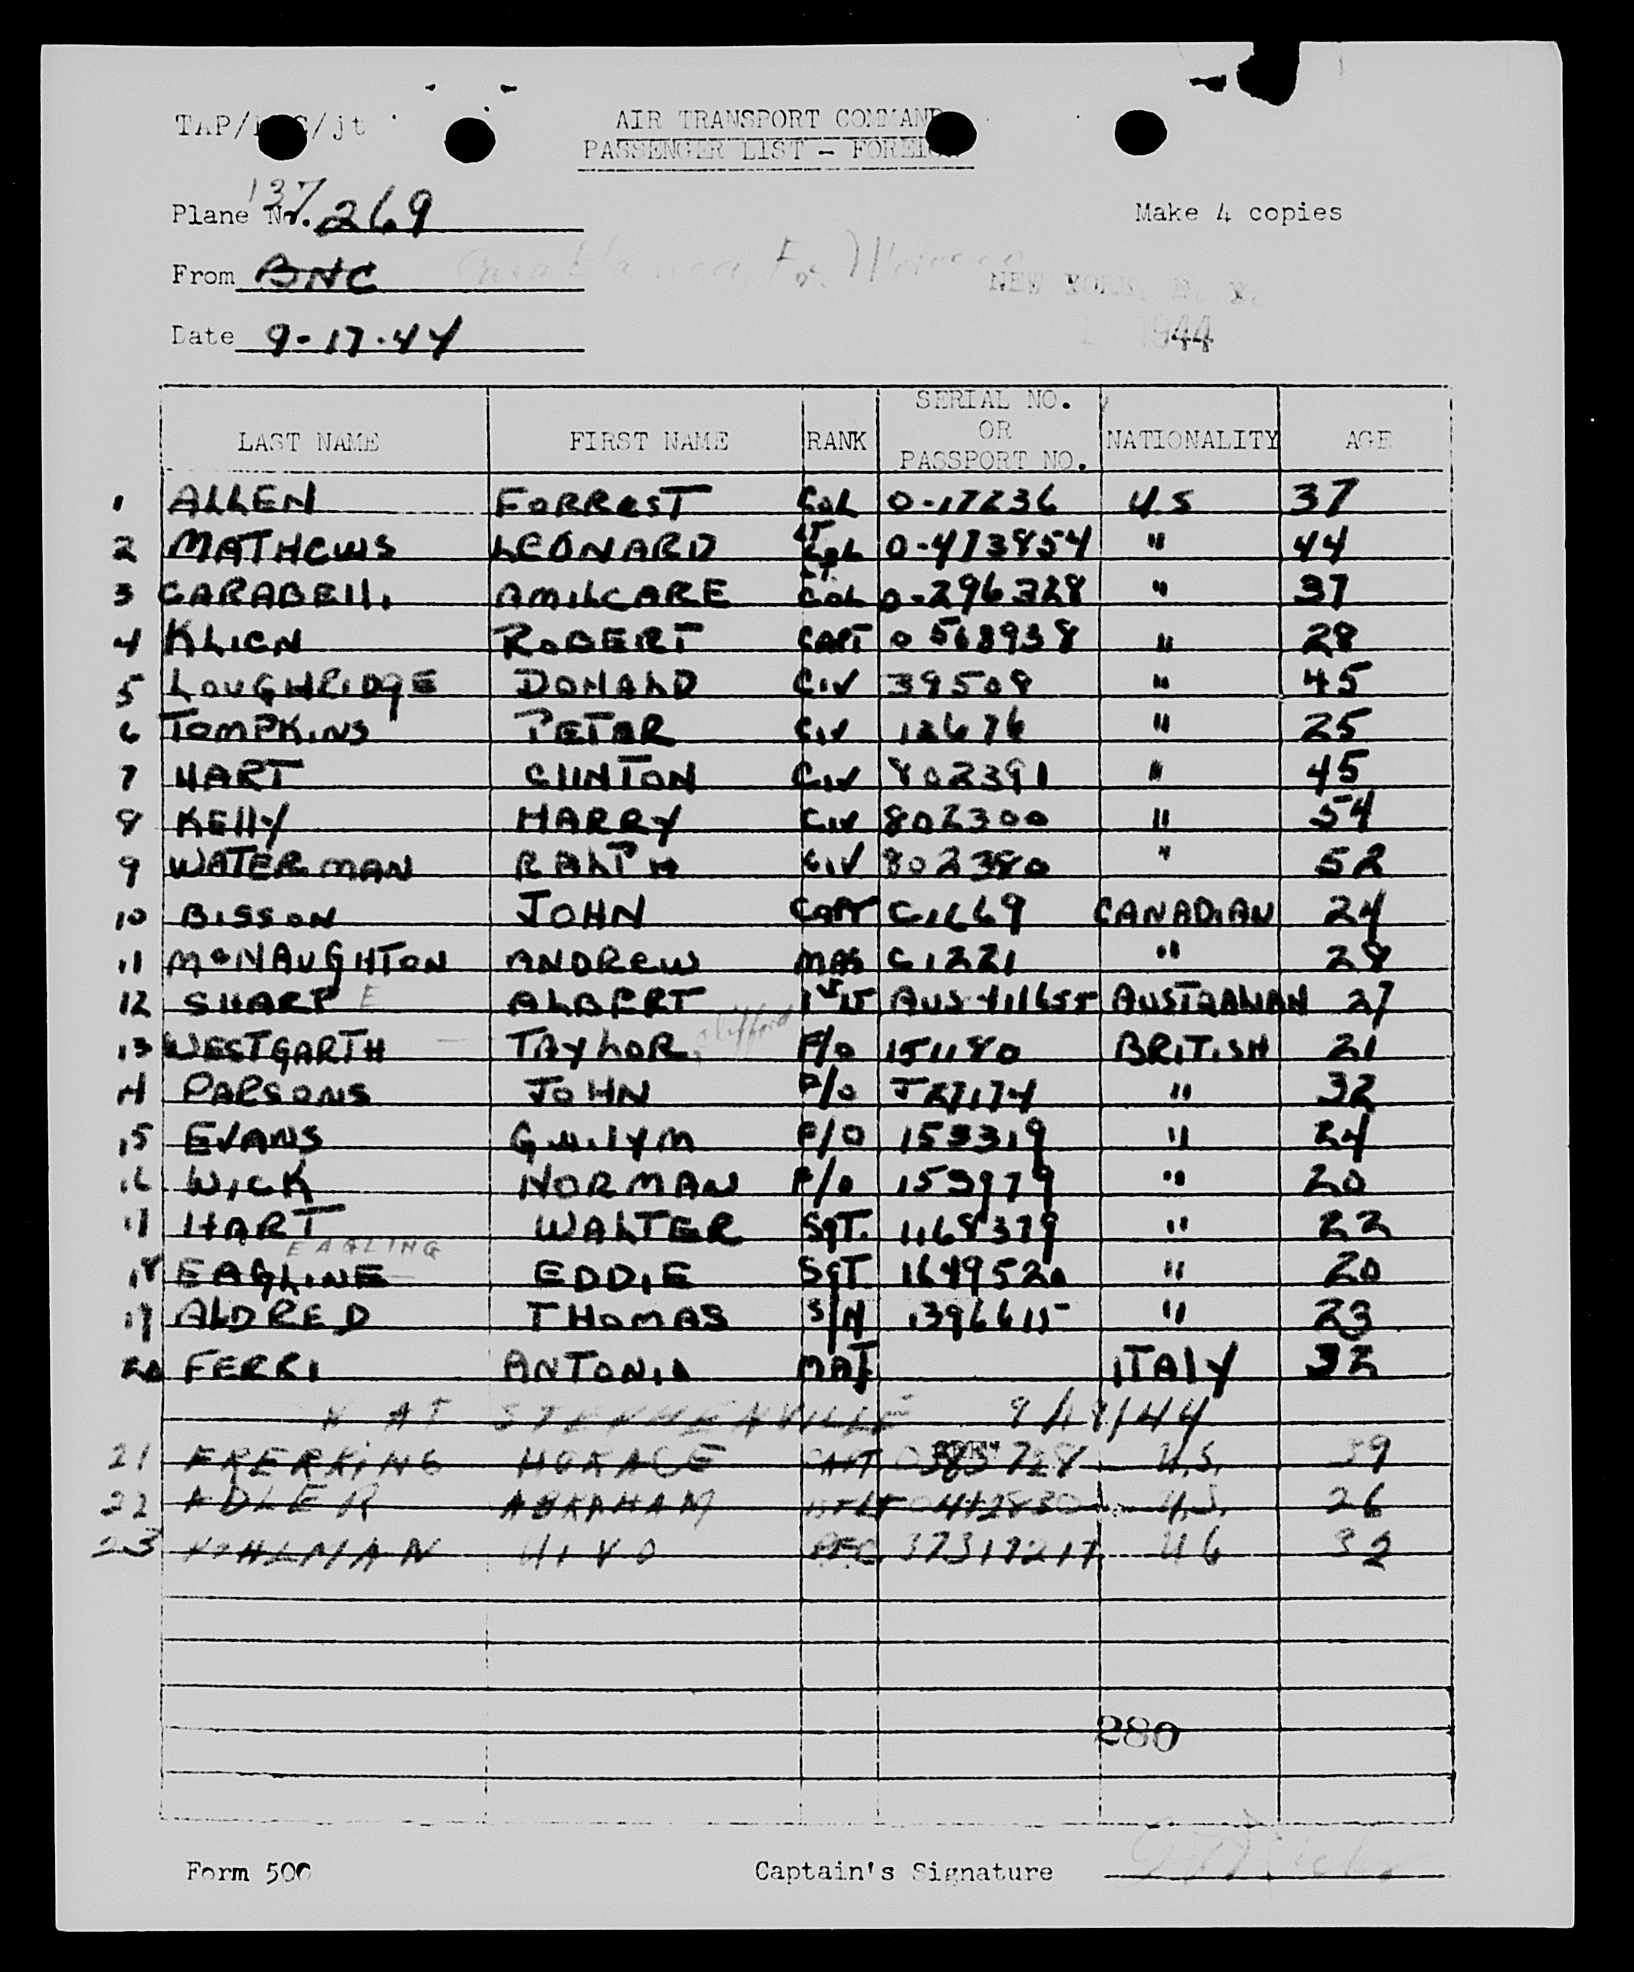 /jt AIR TRANSPORT COMMAND
PASSENGER LIST - FOREIGN
137
Plane No. 269 Make 4 copies
From BNC Casablanca, Fr. Morocco NEW YORK, N. Y.
Date 9-17-44 1944
LAST NAME FIRST NAME RANK SERIAL NO. OR PASSPORT NO. NATIONALITY AGE
1 ALLEN FORREST COL 0-17236 US 37
2 MATHEWS LEONARD LT COL 0-473854 " 44
3 CARABElli AMILCARE LT. COL 0-296328 " 37
4 KLIEN ROBERT CAPT 0 568938 " 28
5 LOUGHRIDgE DONALD CIV 39508 " 45
6 TOMPKINS PETER CIV 12676 " 25
7 HART ClINTON CIV 802391 " 45
8 KElly HARRY CIV 802300 " 54
9 WATERMAN RALPH CIV 802380 " 52
10 BISSON JOHN CAPT C1669 CANADIAN 24
11 McNAUGHTON ANDREW C1221 " 28
12 SHARP E ALBERT 1st LT AUS 411655 AUSTRALIAN 27
13 WESTGARTH TAYLOR, Clifford F/O 151180 BRITISH 21
14 PARSONS JOHN F/O J27174 " 32
15 EVANS GWILYM F/O 153319 " 24
16 WICK NORMAN F/O 153979 " 20
17 HART WALTER SgT. 1168379 " 22
EAGLING
18 EAGLINE EDDIE SgT 1649520 " 20
19 ALDRED THOMAS S/N 1396615 " 23
20 FERRI ANTONIO MAJ ITALY 32
AT STEPHENVILLE 9/17/44
21 FRERKING HORACE CAPT 0385728 U.S. 39
22 ADLER ABRAHAM 1st LT 0442830 U.S. 26
23 HIVO PFC 37317217 US 32
280
Form 500 Captain's Signature